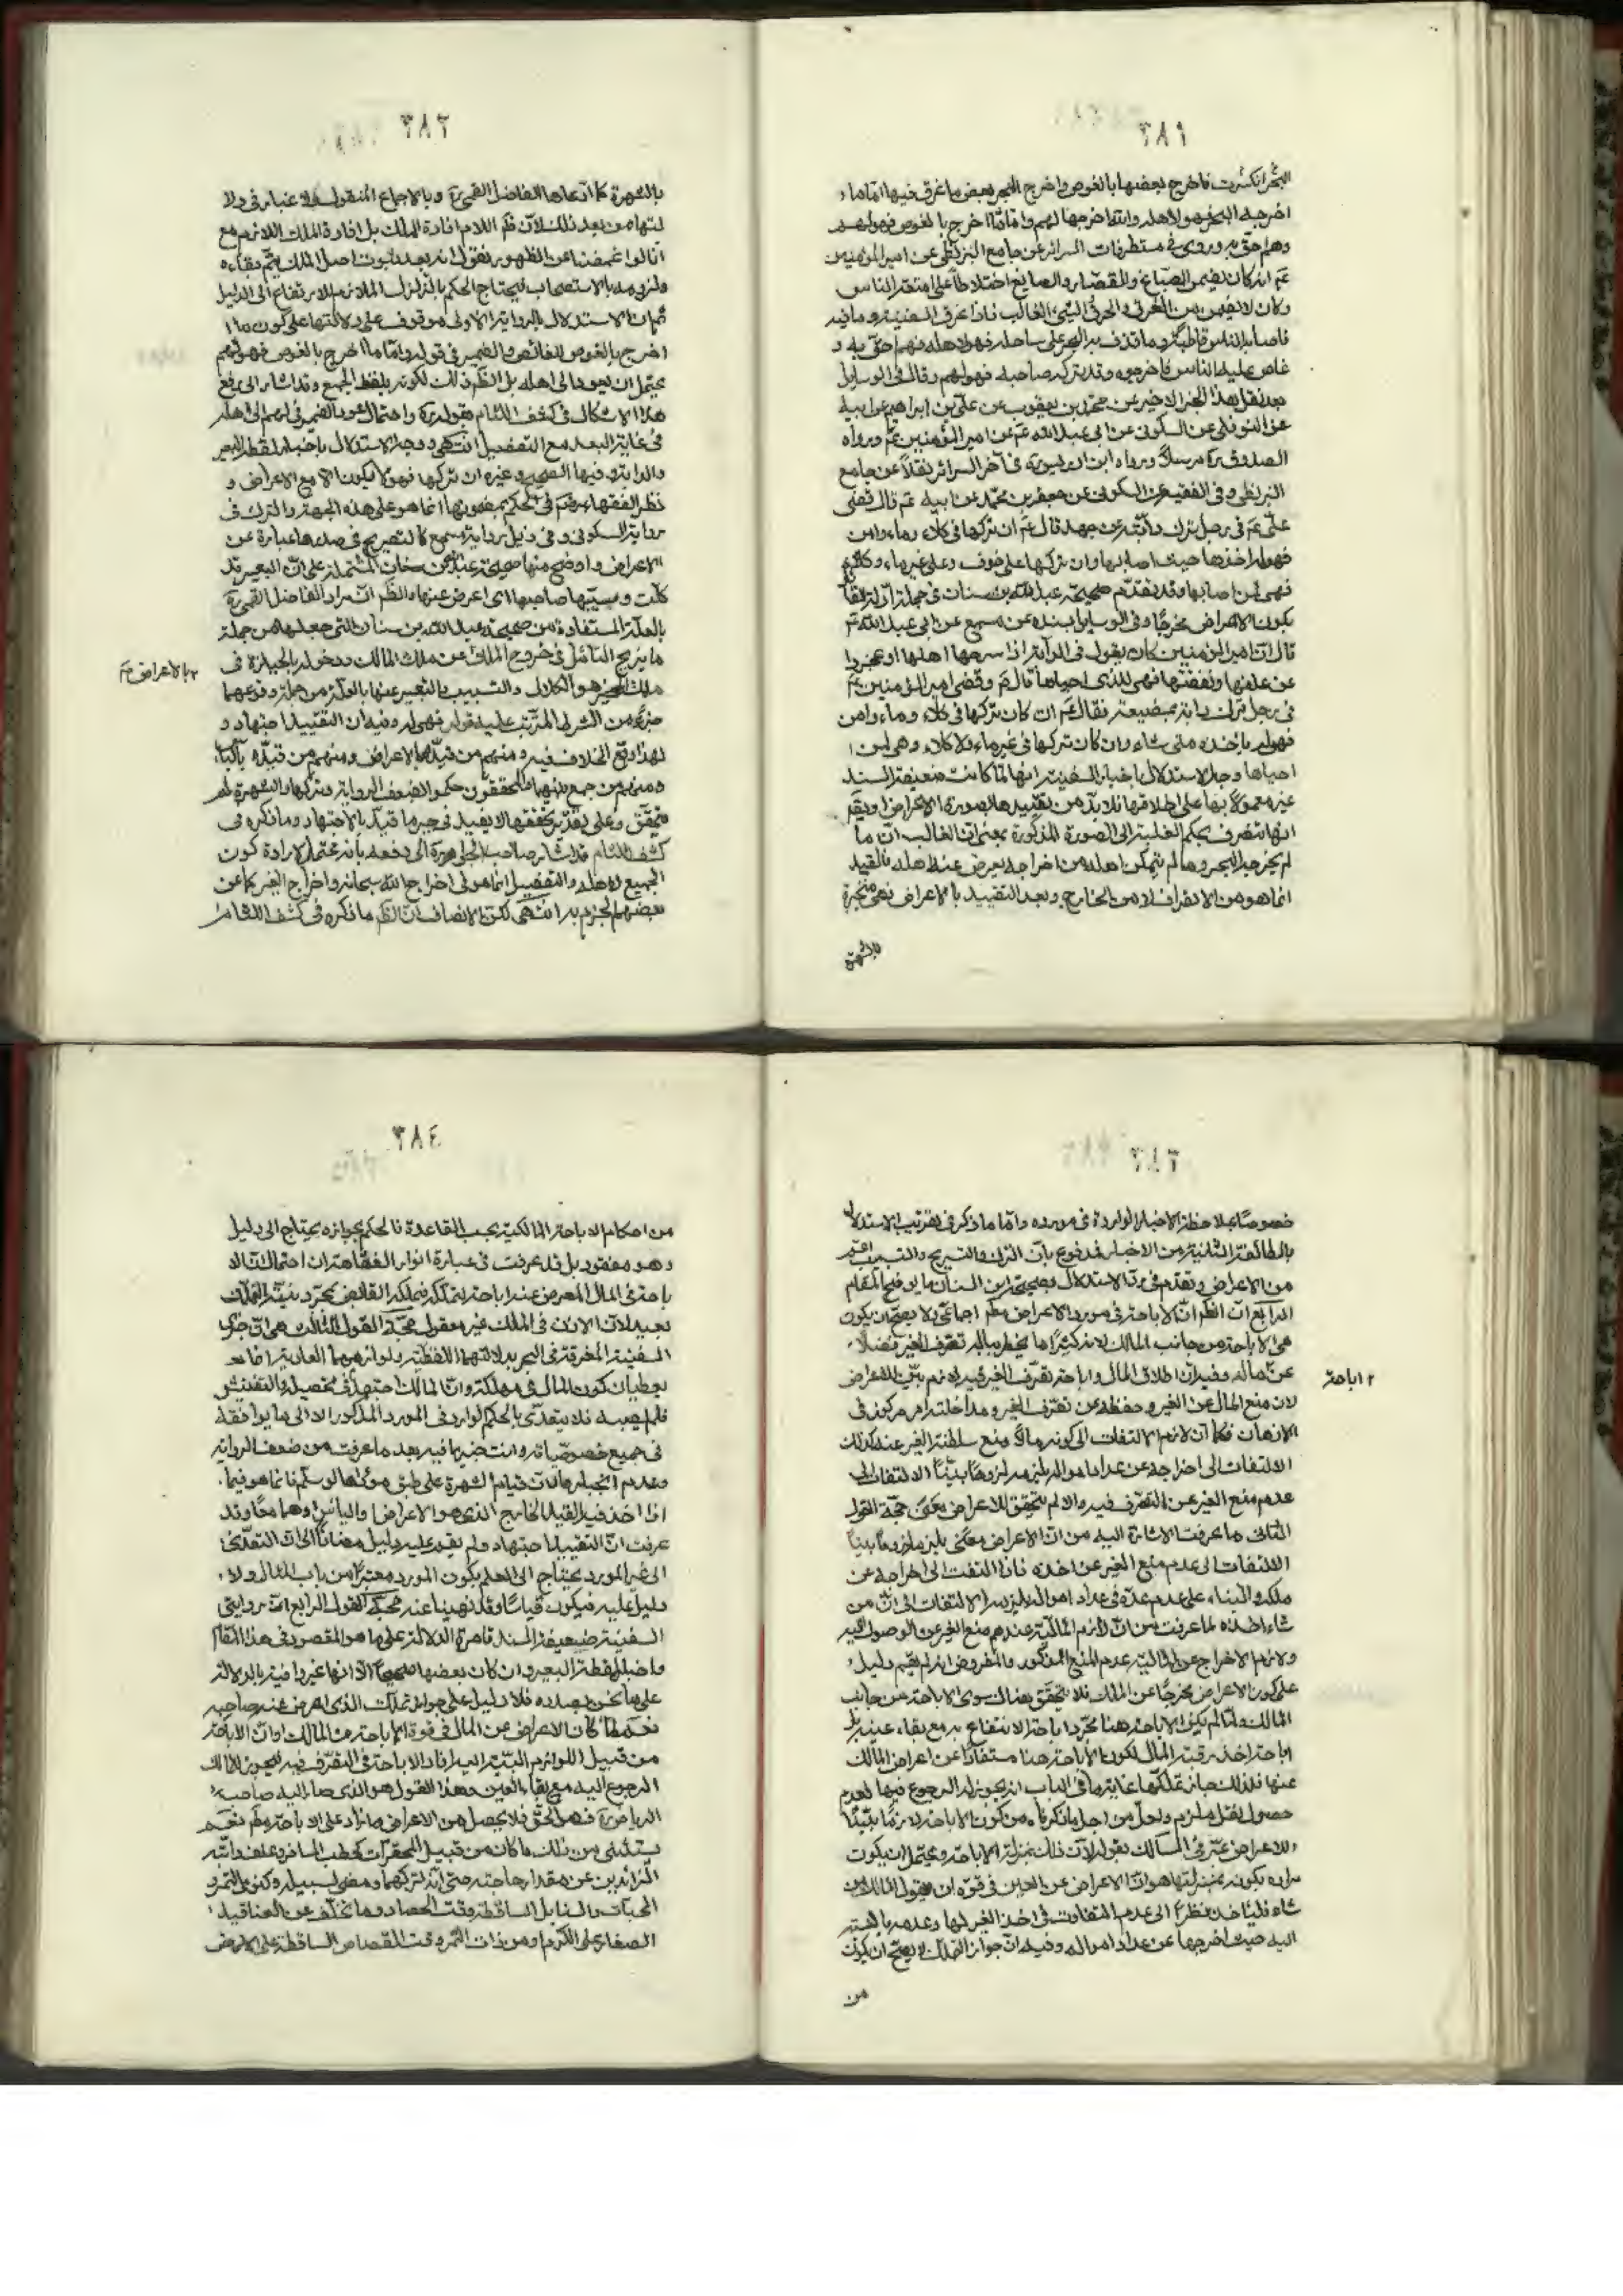 ٣٨١
انكسرت فاخرج بعضها بالغوص واخرج البحر بعض ما غرق فيها فقال اما ما
اخرجه البحر فهو لاهله والله اخرجها لهم واما ما اخرج بالغوص فهو لهم
وهم احق به وروى في مستطرفات السرائر عن جامع البزنطي عن امير المؤمنين
انه كان يضمن الصباغ والقصار والصايغ احتياطا على امتعة الناس
وكان لا يضمن من الغرق والحرق والشيء الغالب فاذا غرق السفينة وما فيه
فاصابه الناس فما قذف به البحر على ساحله فهو لاهله وهم احق به و
غاص عليه الناس فاخرجوه وقد تركه صاحبه فهو لهم وقال في الوسايل
بعد نقل هذا الخبر الاخير عن محمد بن يعقوب عن علي بن ابراهيم عن ابيه
عن النوفلي عن السكوني عن ابي عبد الله عم عن امير المؤمنين عم ورواه
الصدوق ره مرسلا ورواه ابن ادريس في آخر السرائر نقلا عن جامع
البزنطي وفي الفقيه عن السكوني عن جعفر بن محمد عن ابيه عم قال قضى
علي عم في رجل ترك دابته من جهد قال عم ان تركها في كلاء وماء وامن
فهو له ياخذها حيث اصابها وان تركها على خوف وعلى غير ماء وكلاء
فهي لمن اصابها وقد تقدم صحيحة عبد الله بن سنان في جملة ادلة القول
بكون الاعراض مخرجا وفي الوسايل بسنده عن مسمع عن ابي عبد الله عم
قال ان امير المؤمنين كان يقول في الدابة اذا سرحها اهلها او عجزوا
عن علفها ونفقتها فهي للذي احياها قال عم وقضى امير المؤمنين عم
في رجل ترك دابة بمضيعة فقال عم ان كان تركها في كلاء وماء وامن
فهو له ياخذه متى شاء وان كان تركها في غير ماء ولا كلاء وهي لمن
احياها وجه الاستدلال باخبار السفينة انها لما كانت ضعيفة السند
غير معمولا بها على اطلاقها فلا بد من تقييدها بصورة الاعراض ويقم
انها تنصرف بحكم الغلبة الى الصورة المذكورة بمعنى ان الغالب ان ما
لم يخرجه البحر وما لم يتمكن اهله من اخراجه يعرض عنه اهله فالقيد
انما هو من الانصراف لا من الخارج وبعد التقييد بالاعراض فهي منجبرة
بالشهرة
٣٨٢
بالشهرة كما ادعاها الفاضل القمي ره وبالاجماع المنقول فلا غبار في دلا
لتها من بعد ذلك لان ظم اللام افادة الملك بل افادة الملك اللازم مع
انا لو اغمضنا عن الظهور نقول انه بعد ثبوت اصل الملك يتم بقاءه
ولزومه بالاستصحاب فيحتاج الحكم بالتزلزل الملازم للارتفاع الى الدليل
ثم ان الاستدلال بالرواية الاولى موقوف على دلالتها على كون ما
اخرج بالغوص للغائص والضمير في قوله واما ما اخرج بالغوص فهو لهم
يحتمل ان يعود الى اهله بل الظم ذلك لكونه بلفظ الجمع وقد اشار الى دفع
هذا الاشكال في كشف اللثام بقوله ره واحتمال عود الضمير في لهم الى اهله
في غاية البعد مع التفصيل انتهى ووجه الاستدلال باخبار لقطة البعير
والدابة وفيها الصحيح وغيره ان تركها فهو لا يكون الا مع الاعراض و
نظر الفقهاء رضم في الحكم بمضمونها انما هو على هذه الجهة والترك في
رواية السكوني وفي ذيل رواية مسمع كالتصريح في صدرها عبارة عن
الاعراض واوضح منها صحيحة عبد الله بن سنان المشتملة على ان البعير قد
كلت وسيبها صاحبها اى اعرض عنها والظم ان مراد الفاضل القمي ره
بالعلة المستفادة من صحيحة عبد الله بن سنان التي جعلها من جملة
ما يزيح التامل في خروج الملك عن ملك المالك ودخوله بالحيازة في
ملك الغير هو الكلال والتسييب والتعبير عنها بالعلة من جهة وقوعهما
جزء من الشرط المترتب عليه قوله فهي له وفيه ان التقييد اجتهاد و
لهذا وقع الخلاف فيه ومنهم من قيده بالاعراض ومنهم من قيده باليأس
ومنهم من جمع بينهما والمحققون حكموا بضعف الرواية وتركها والشهرة لم
تتحقق وعلى تقدير تحققها لا يفيد في جبر ما قيد بالاجتهاد وما ذكره في
كشف اللثام قد اشار صاحب الجواهر ره الى دفعه بانه محتمل لارادة كون
الجميع لاهله والتفصيل انما هو في اخراج الله سبحانه واخراج الغير كما عن
بعضهم الجزم به انتهى لكن الانصاف ان الظم ما ذكره في كشف اللثام
٢ بالاعراض ثم
٣٨٣
خصوصا بملاحظة الاخبار الواردة في مورده واما ما ذكر في تقريب الاستدلال
بالطائفة الثانية من الاخبار فمدفوع بان الترك والتسريح والتسييب اعم
من الاعراض وتقدم في رد الاستدلال بصحيحة ابن سنان ما يوضح المقام
الرابع ان الظم ان الاباحة في مورد الاعراض مطم اجماعي ولا يصح ان يكون
هي الاباحة من جانب المالك لانه كثيرا ما يخطر بباله تصرف الغير فضلا
عن ماله وفيه ان اطلاق المال واباحة تصرف الغير فيه لازم بين للاعراض
لان منع المال عن الغير وحفظه عن تصرف الغير ومداخلته امر مركوز في
الاذهان فكما ان لازم الالتفات الى كونه مالا ومنع سلطنة الغير عنه كذلك
الالتفات الى اخراجه عن عداد امواله يلزمه لزوما بينا الالتفات الى
عدم منع الغير عن التصرف فيه والا لم يتحقق للاعراض معنى حجة القول
الثاني ما عرفت الاشارة اليه من ان الاعراض معنى يلزمه لزوما بينا
الالتفات الى عدم منع الغير عن اخذه فاذا التفت الى اخراجه عن
ملكه والبناء على عدم عده في عداد امواله يلزمه الالتفات الى ان من
شاء اخذه لما عرفت من ان لازم المالية عندهم منع الغير عن الوصول اليه
ولازم الاخراج عن المالية عدم المنع المذكور والمفروض انه لم يقم دليل
على كون الاعراض مخرجا عن الملك فلا يتحقق هناك سوى الاباحة من جانب
المالك ولما لم يكن الاباحة هنا مجرد اباحة الانتفاع به مع بقاء عينه بل
اباحة اخذ رقبة المال لكون الاباحة هنا مستفادا عن اعراض المالك
عنها فلذلك جاز تملكها غاية ما في الباب انه يجوز له الرجوع فيها لعدم
حصول نقل ملزم ولعل من اجل ما ذكرناه من كون الاباحة لازما بينا
للاعراض عبر في المسالك بقوله لان ذلك بمنزلة الاباحة ويحتمل ان يكون
مراده بكونه بمنزلتها هو ان الاعراض عن العين في قوة ان يقول المالك من
شاء فلياخذه نظرا الى عدم التفاوت في اخذ الغير لها وعدمه بالنسبة
اليه حيث اخرجها عن عداد امواله وفيه ان جواز التملك لا يصح ان يكون
من
٢ اباحة
٣٨٤
من احكام الاباحة المالكية بحسب القاعدة فالحكم بجوازه يحتاج الى دليل
وهو مفقود بل قد عرفت في عبارة انوار الفقاهة ان احتمال ان الا
باحة في المال المعرض عنه اباحة لتملكه فيملكه القابض بمجرد نية التملك
بعيد لان الاذن في الملك غير معقول حجة القول الثالث هي ان خبرى
السفينة المغرقة في البحر بدلالتهما اللفظية ولوازمهما العادية انما
يعطيان كون المال في مهلكة وان المالك اجتهد في تحصيله والتفتيش
فلم يصبه فلا يتعدى بالحكم الوارد في المورد المذكور الا الى ما يوافقه
في جميع خصوصياته وانت خبير بما فيه بعد ما عرفت من ضعف الرواية
وعدم انجبارها لان قيام الشهرة على طبق مؤداها لو سلم فانما هو فيما
اذا اخذ فيه القيد الخارج الذي هو الاعراض او اليأس او هما معا وقد
عرفت ان التقييد اجتهاد ولم يقم عليه دليل مضافا الى ان التعدي
الى غير المورد يحتاج الى العلم بكون المورد معتبرا من باب المثال ولا
دليل عليه فيكون قياسا وقد نهينا عنه حجة القول الرابع ان روايتي
السفينة ضعيفة السند قاصرة الدلالة على ما هو المقصود في هذا المقام
واخبار لقطة البعير وان كان بعضها صحيحا الا انها غير وافية بالدلالة
على ما نحن بصدده فلا دليل على جواز تملك الذي اعرض عنه صاحبه
نعم لما كان الاعراض عن المال في قوة الاباحة من المالك او ان الاباحة
من قبيل اللوازم البينة اليه افاد الاباحة في التصرف فيه فيجوز للمالك
الرجوع اليه مع بقاء العين وهذا القول هو الذي صار اليه صاحب
الرياض ره وهو الحق فلا يحصل من الاعراض ما زاد على الاباحة مطم نعم
يستثنى من ذلك ما كان من قبيل المحقرات كحطب المسافر وعلف دابته
الزائدين عن مقدار حاجته حتى انه لتركهما ومضى لسبيله وكنوى التمر و
الحبات والسنابل الساقطة وقت الحصاد وما تخلف عن العناقيد
الصغار على الكرم ومن ذات التمر وقت القصاص الساقطة على الارض